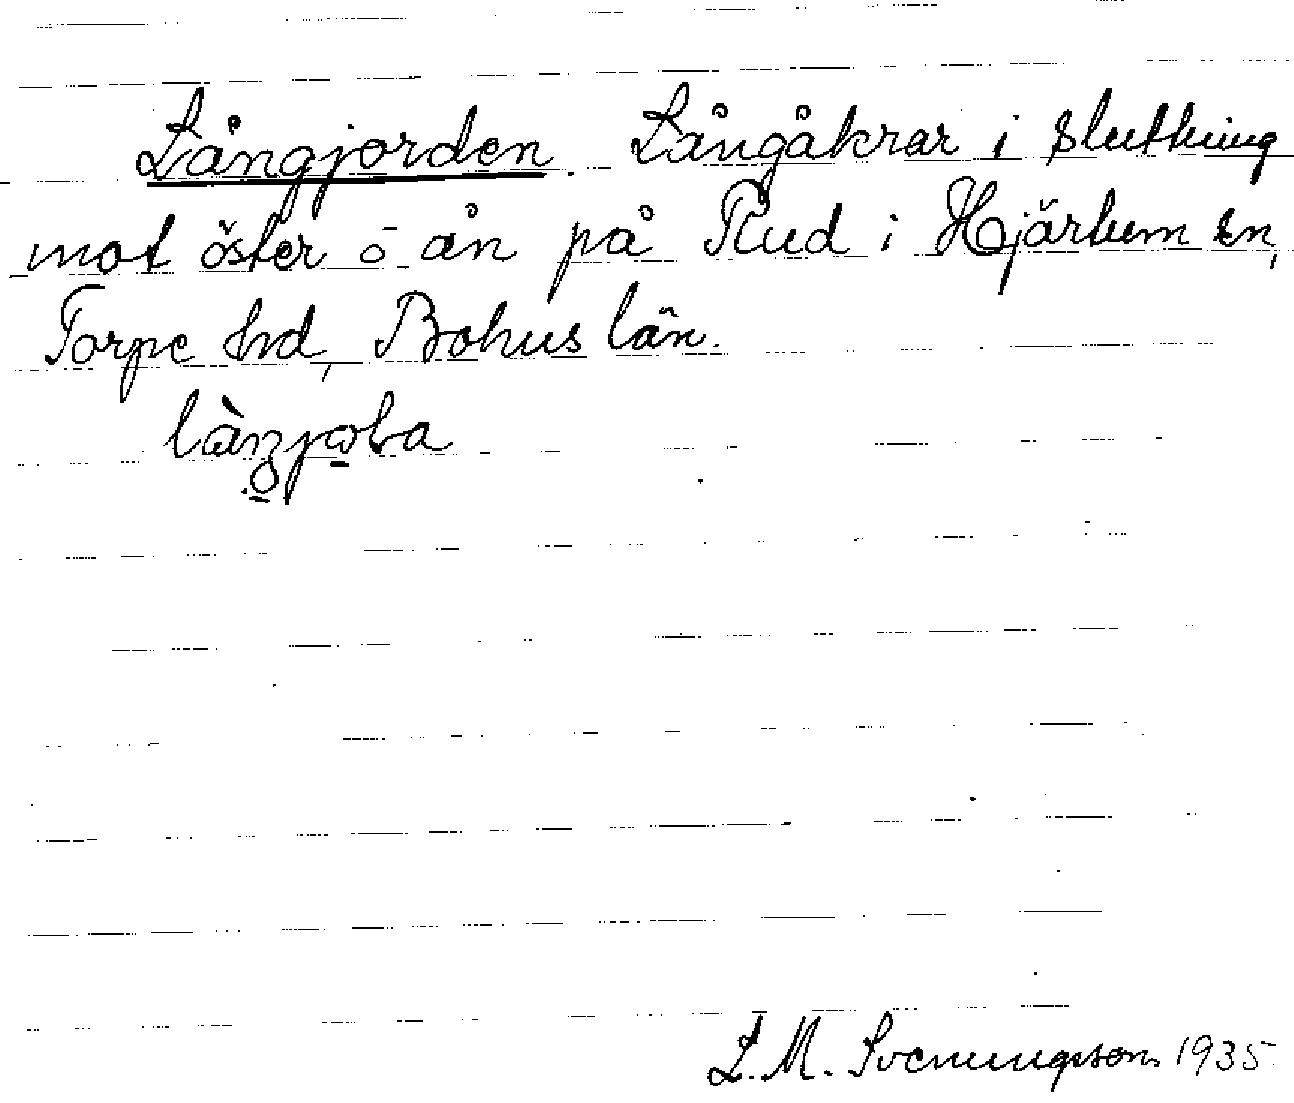 Långjorden. Långåkrar i sluttning
mot öster ō ån på Rud i Hjärtum sn,
Torpe hd, Bohus län.
L. M. Svenungsson 1935